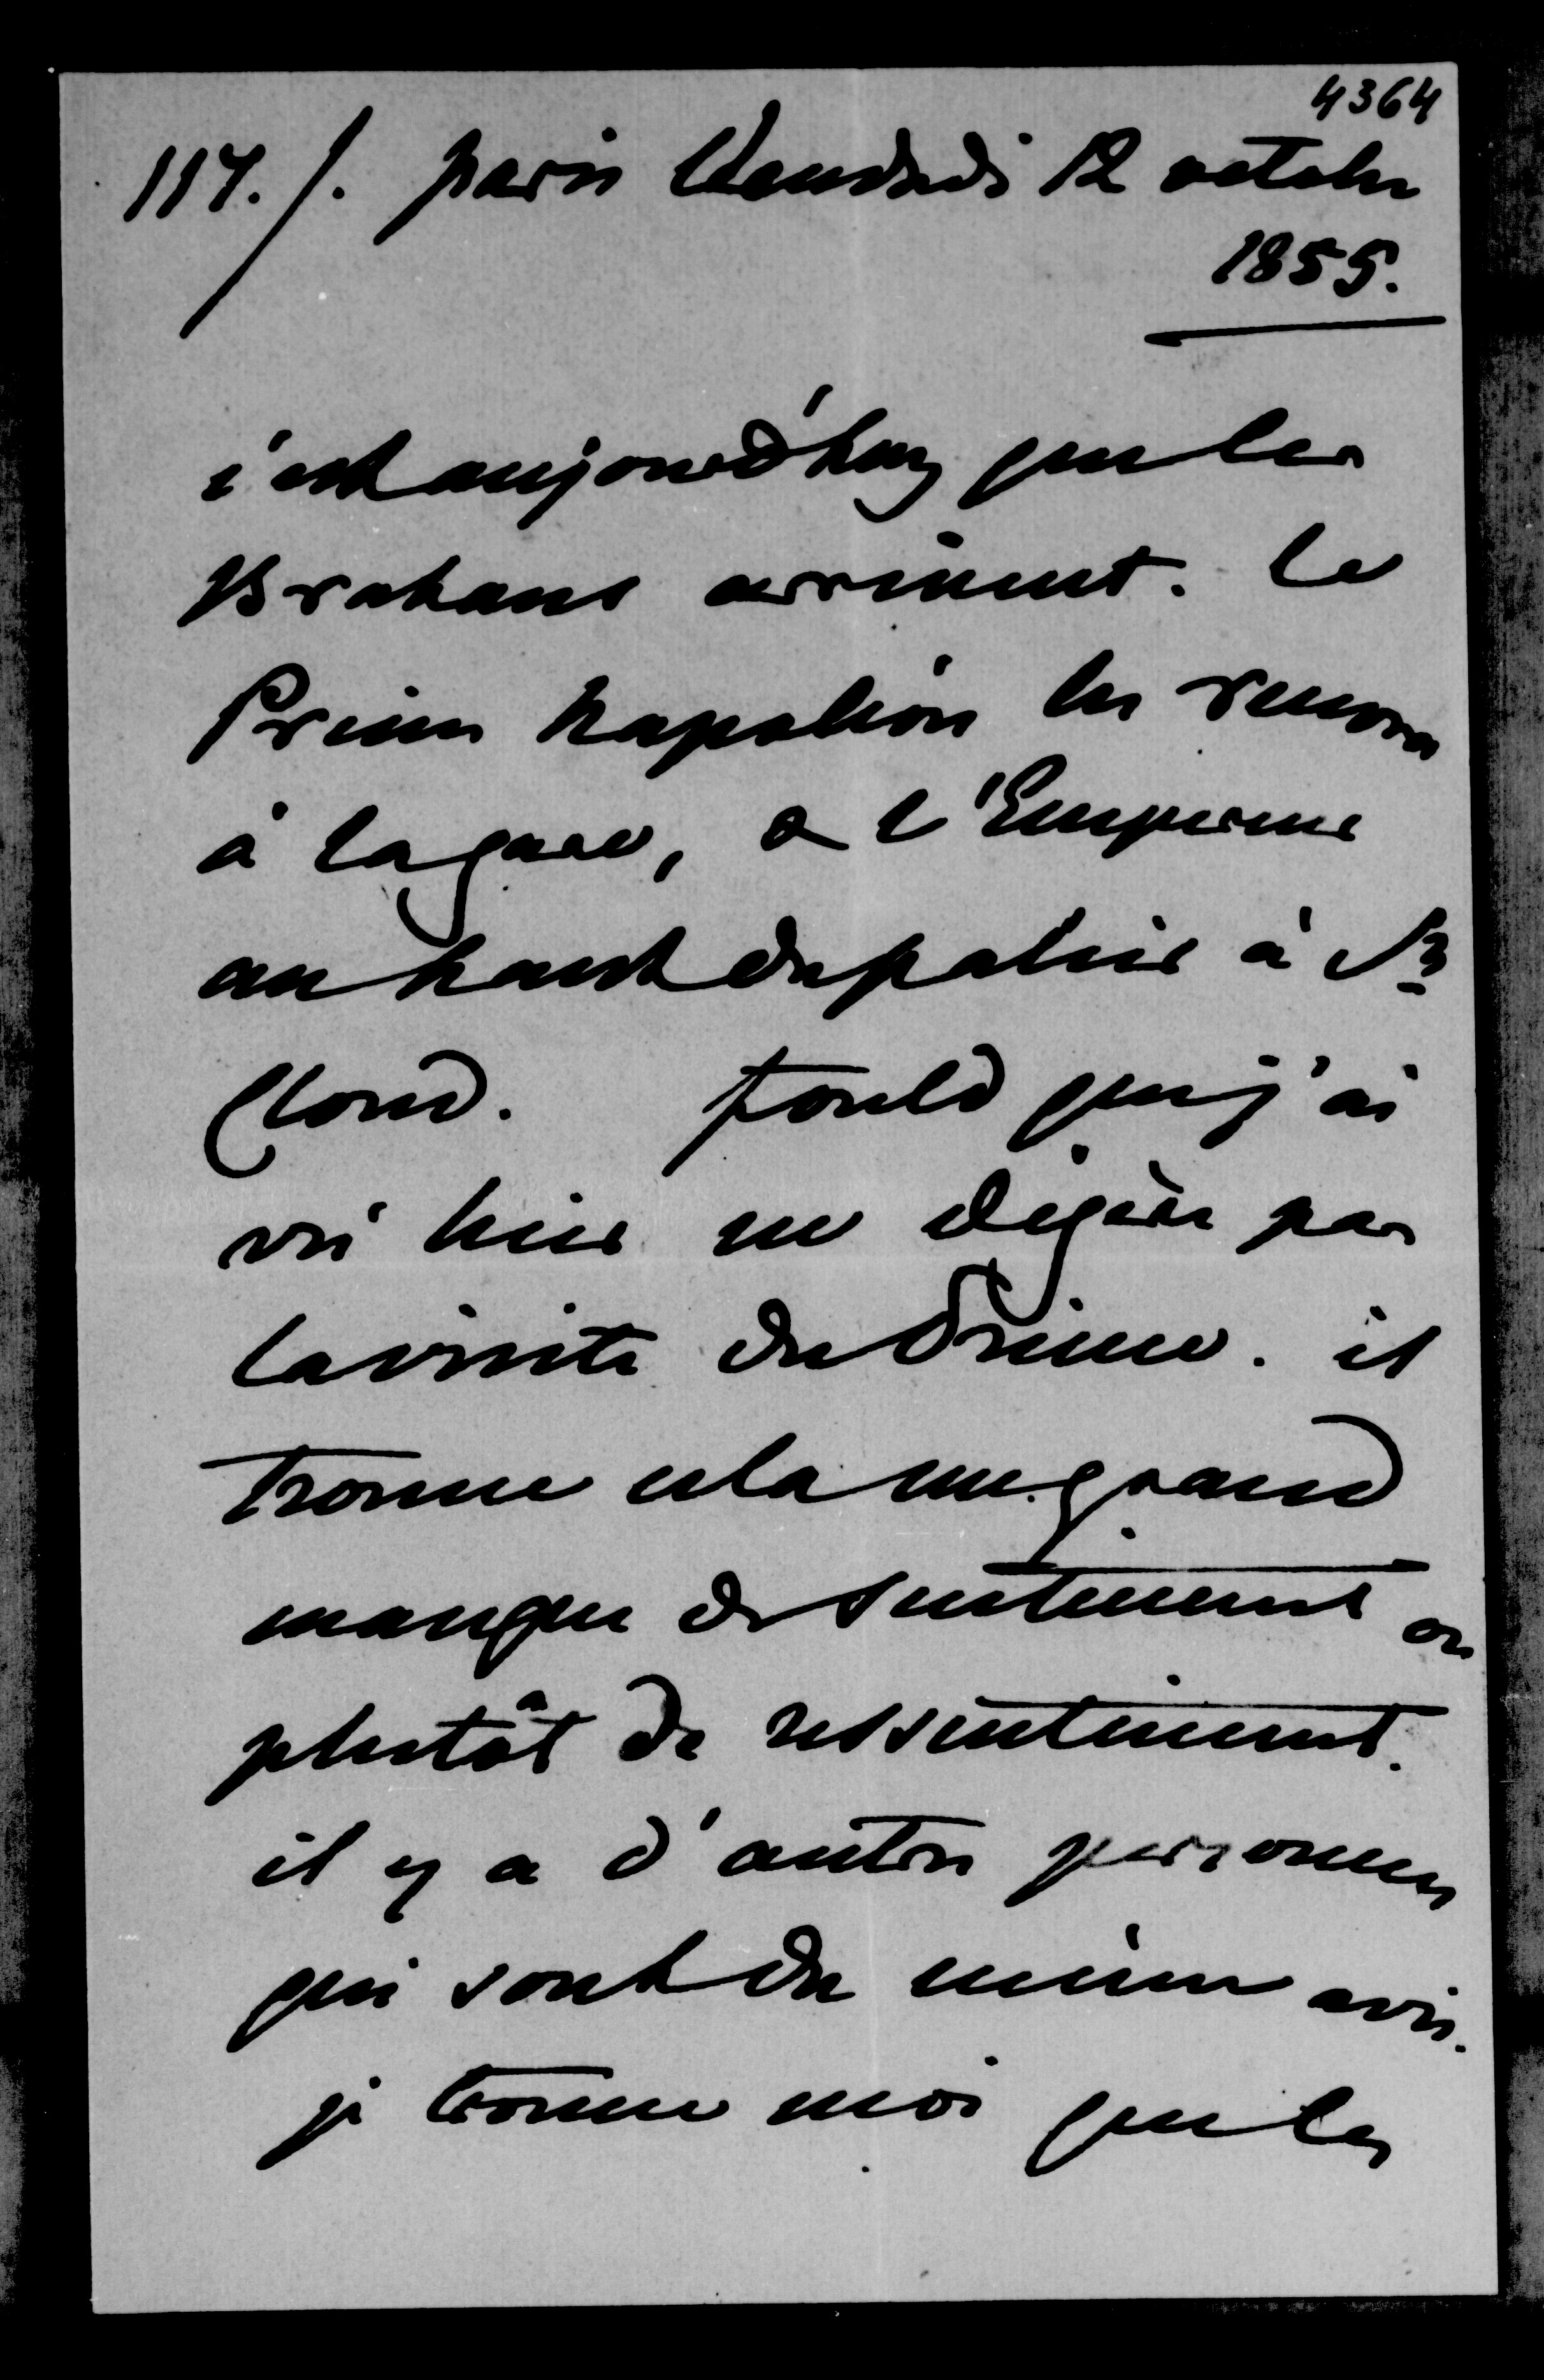 4364
117. /. Paris Vendredi 12 octobre
1855.
c'est aujourd'huy que les
Brabant arrivent. le
Prince Napoléon les recevra
à la gare, & l'Empereur
au haut du palier à St
Cloud. Fould que j'ai
vu hier ne digère pas
la visite du Prince. il
trouve cela un grand
manque de sentiment ou
plutôt de ressentiment.
il y a d'autres personnes
qui sont du même avis.
je trouve moi que les